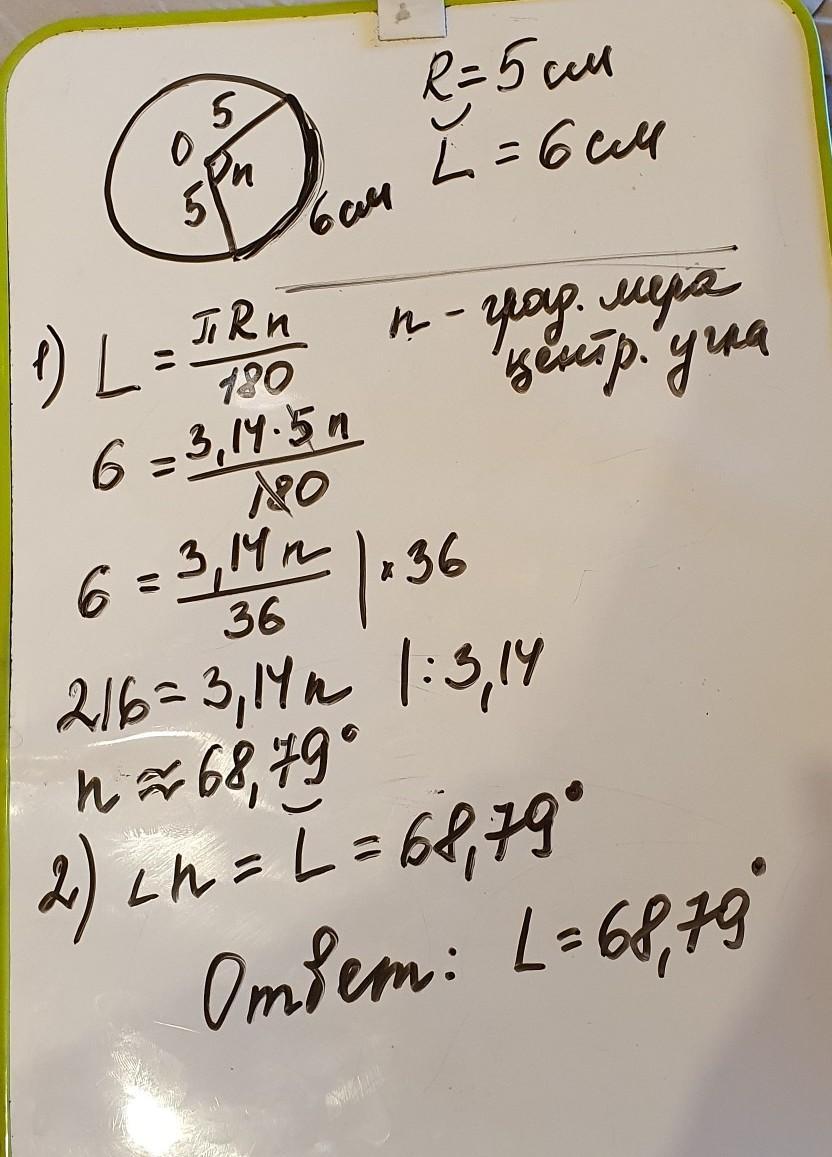 5
O
n
5
6 см
R = 5 см
L = 6 см
n - град. мера
центр. угла
1) L = πRn/180
6 = 3,14·5n/180
6 = 3,14n/36 |×36
216 = 3,14n |:3,14
n ≈ 68,79°
2) ∠n = L = 68,79°
Ответ: L = 68,79°